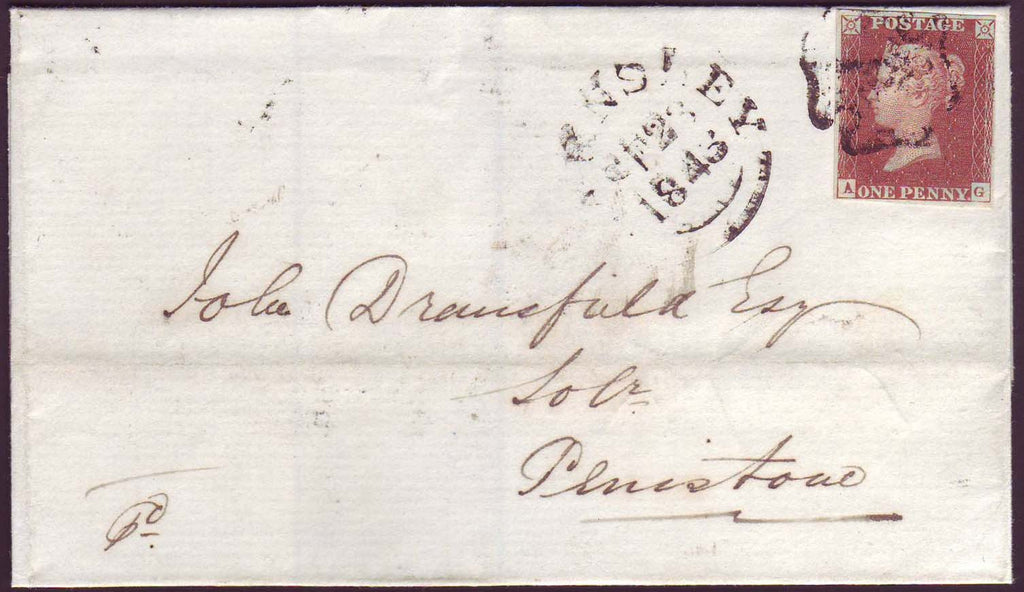 POSTAGE
A ONE PENNY. G
NSLEY
SP 23
1843
John Dransfield Esqr
Solr
Penistone
Pd